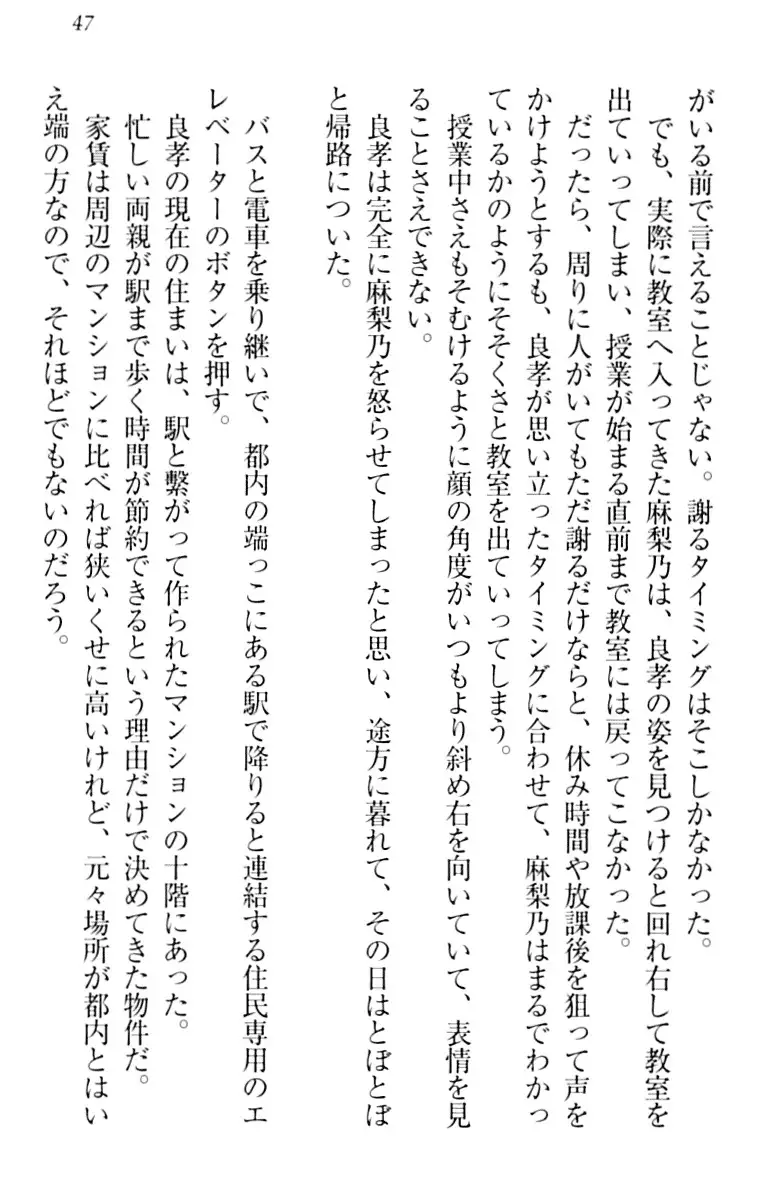 47
がいる前で言えることじゃない。謝るタイミングはそこしかなかった。
でも、実際に教室へ入ってきた麻梨乃は、良孝の姿を見つけると回れ右して教室を
出ていってしまい、授業が始まる直前まで教室には戻ってこなかった。
だったら、周りに人がいてもただ謝るだけならと、休み時間や放課後を狙って声を
かけようとするも、良孝が思い立ったタイミングに合わせて、麻梨乃はまるでわかっ
ているかのようにそそくさと教室を出ていってしまう。
授業中さえもそむけるように顔の角度がいつもより斜め右を向いていて、表情を見
ることさえできない。
良孝は完全に麻梨乃を怒らせてしまったと思い、途方に暮れて、その日はとぼとぼ
と帰路についた。
バスと電車を乗り継いで、都内の端っこにある駅で降りると連結する住民専用のエ
レベーターのボタンを押す。
良孝の現在の住まいは、駅と繋がって作られたマンションの十階にあった。
忙しい両親が駅まで歩く時間が節約できるという理由だけで決めてきた物件だ。
家賃は周辺のマンションに比べれば狭いくせに高いけれど、元々場所が都内とはい
え端の方なので、それほどでもないのだろう。